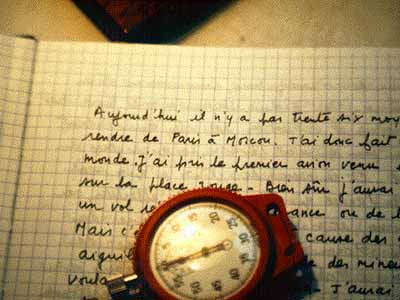 Aujourd'hui il n'y a pas trente six moy
rendre de Paris à Moscou. J'ai donc fait
monde. J'ai pris le premier avion venu
sur la place rouge. Bien sûr j'aurai
un vol ance ou de l
Mais c' cause des
aiguil des mine
voula J'aurai